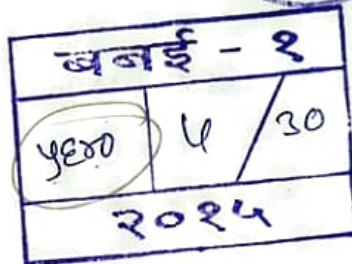 बबई - १
५६४० ५ / ३०
२०१५